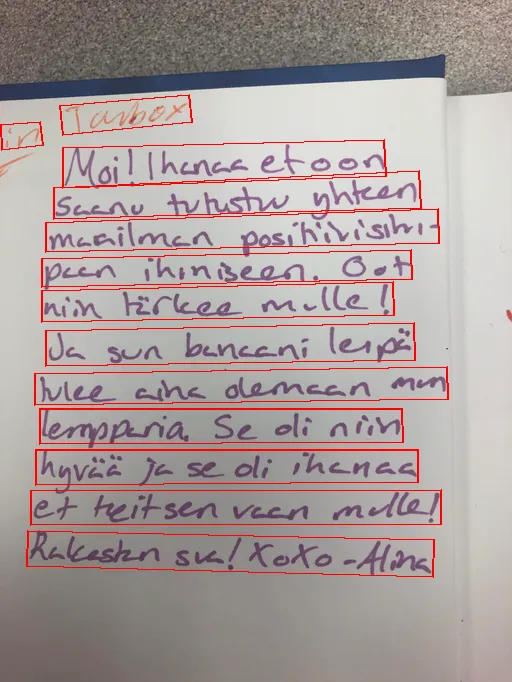 in Tarbox
Moi! Ihanaa et oon
saanu tutustuu yhteen
maailman positiivisim-
paan ihmiseen. Oot
niin tärkee mulle!
Ja sun banaani leipä
tulee aina olemaan mun
lempparia. Se oli niin
hyvää ja se oli ihanaa
et teitsen vaan mulle!
Rakastan sua! XoXo -Alina